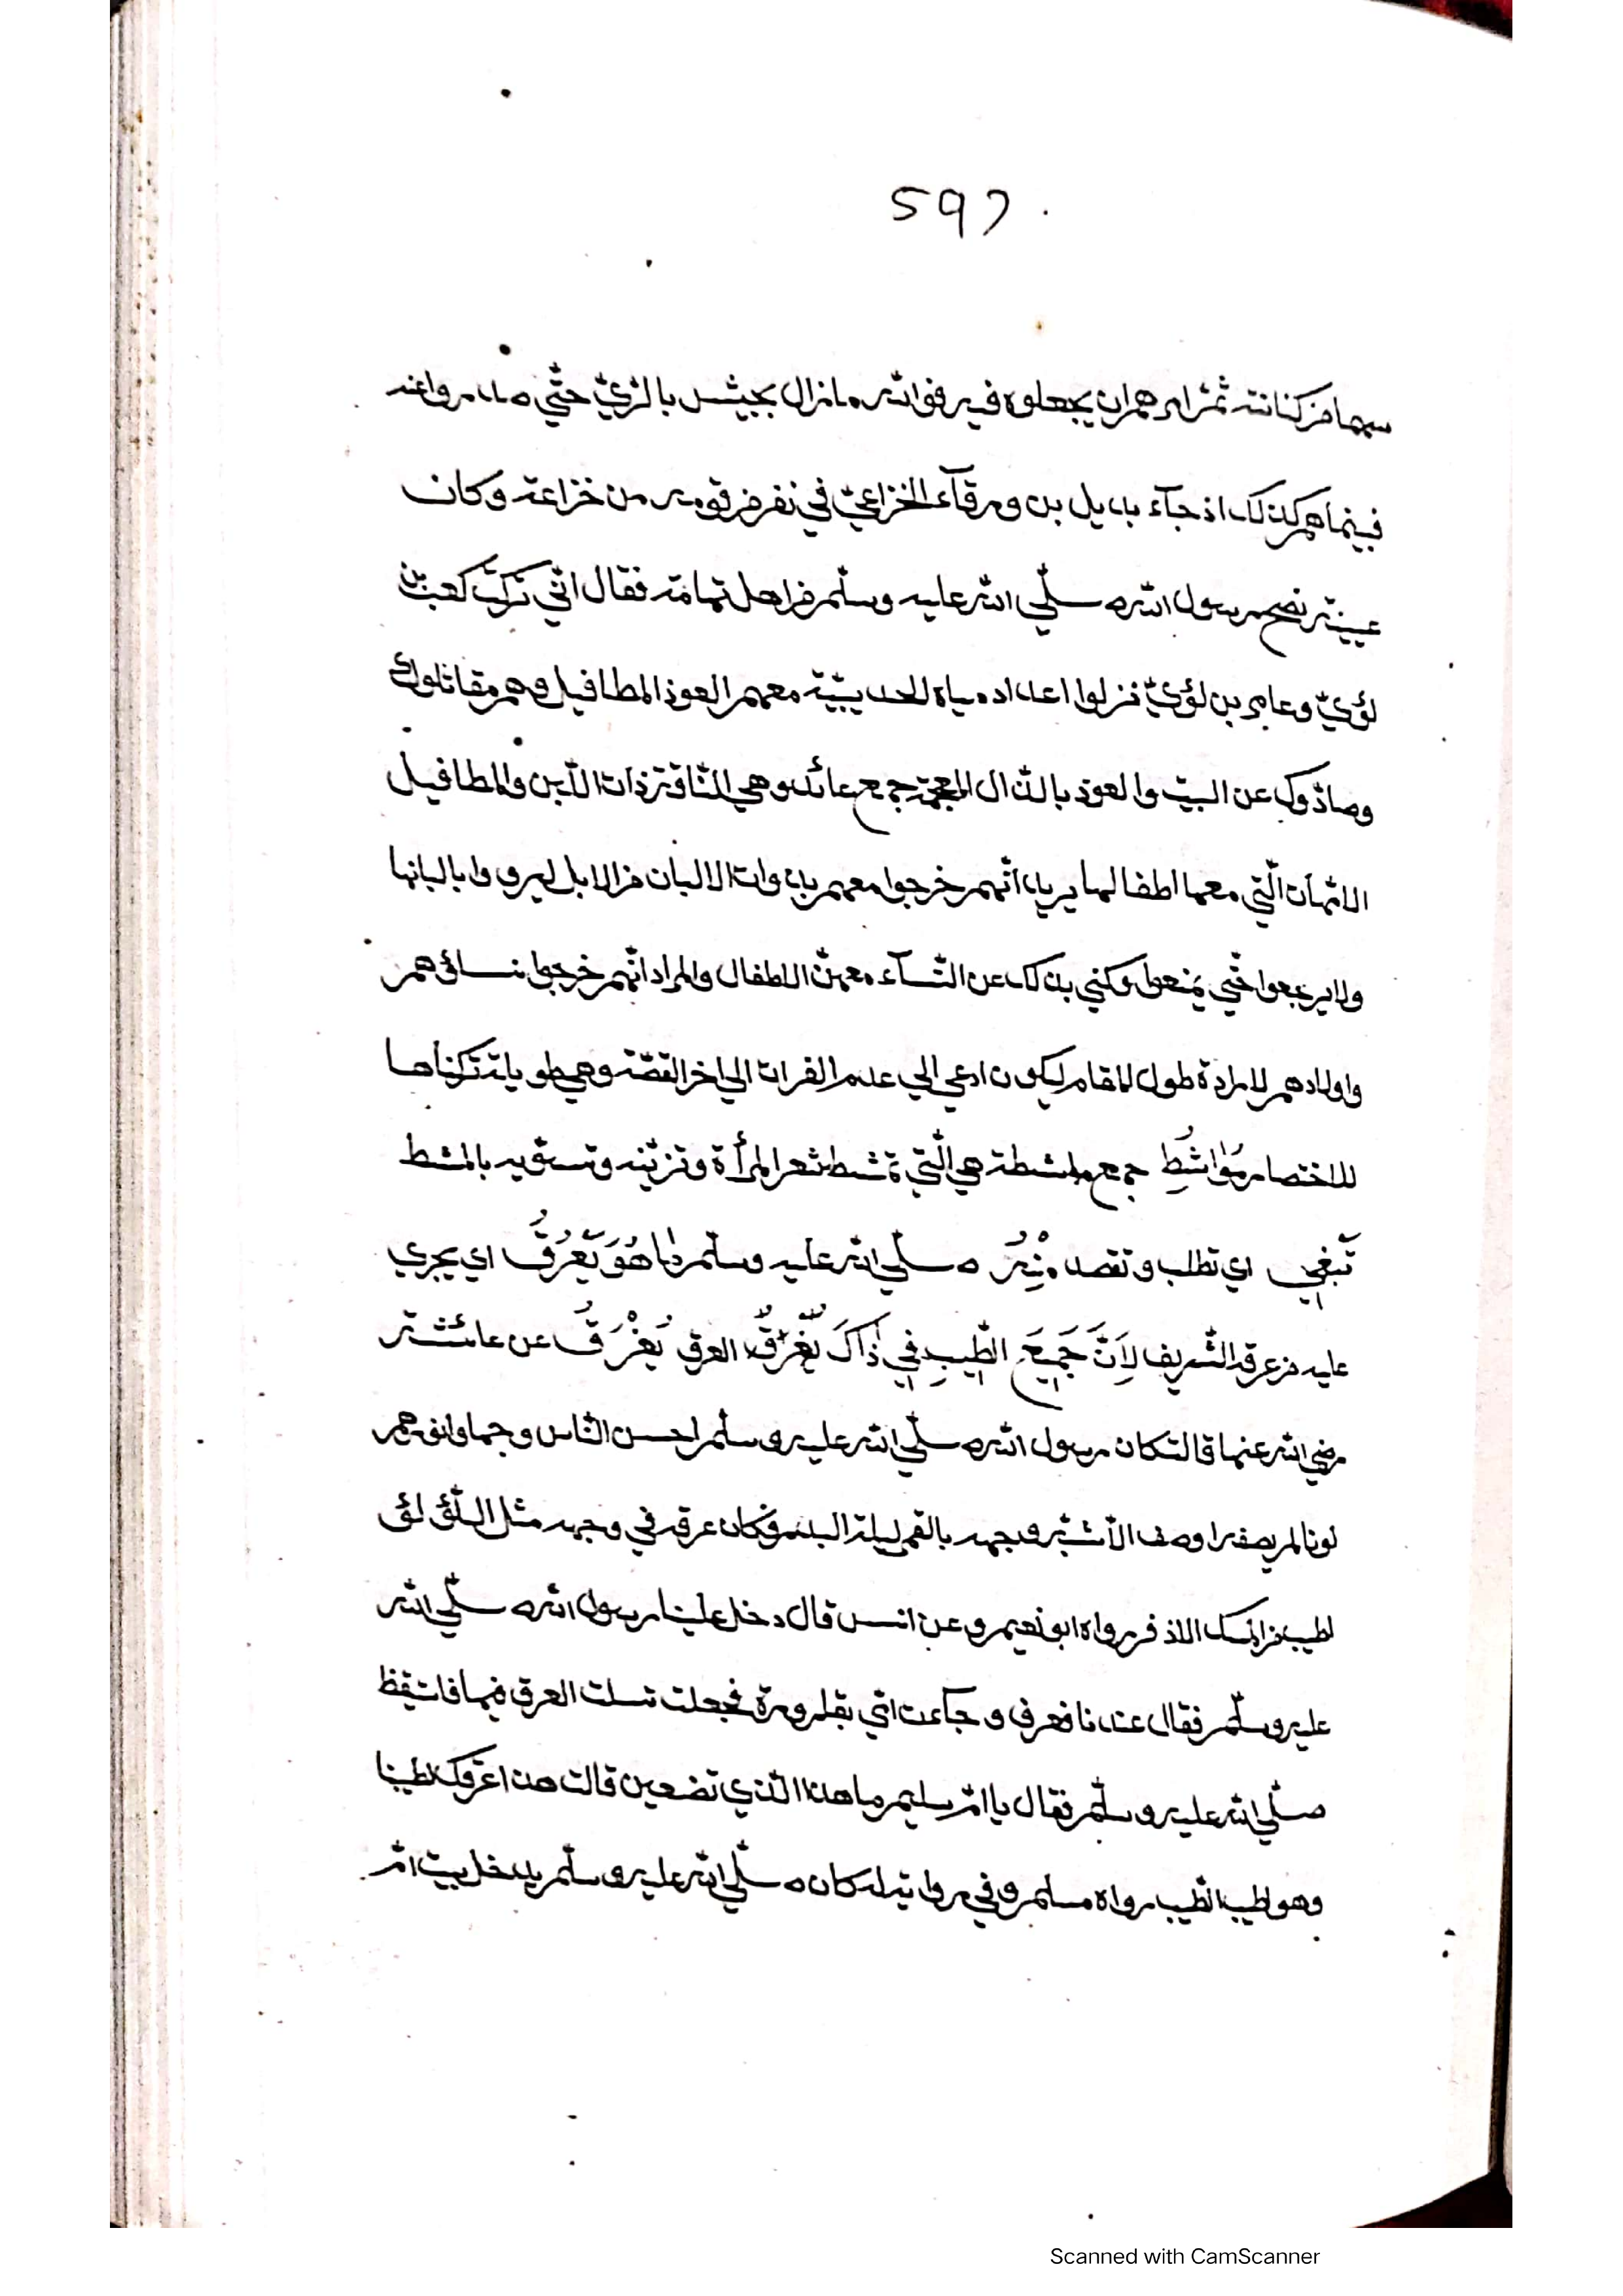 597
سهما من كنانته ثمّ امرهم ان يجعلوه فيه فوالله ما زال يجيش بالرّيّ حتّي صدروا عنه
فبينما هم كذلك اذ جآء بديل بن ورقآء الخزاعيّ في نفر من قومه من خزاعة وكان
عيبة نصح رسول الله صلّي الله عليه وسلّم من اهل تهامة فقال انّي تركت كعب بن
لؤيّ وعامر بن لؤيّ نزلوا اعداد مياه الحديبيّة معهم العوذ المطافيل وهم مقاتلوك
وصادّوك عن البيت والعوذ بالذّال المعجمة جمع عائذ وهي النّاقة ذات اللّبن والمطافيل
الامّهات الّتي معها اطفالها يريد انّهم خرجوا معهم بذوات الالبان من الابل ليتزودوا بالبانها
ولا يرجعوا حتّي يمنعوه وكني بذلك عن النّسآء معهنّ الاطفال والمراد انّهم خرجوا بنسائهم
واولادهم لارادة طول المقام ليكون ادعي الي عدم الفرار الي اخر القصّة وهي طويلة تركناها
للاختصار مَوَاشِطُ جمع ماشطة هي الّتي تمشط شعر المرأة وتزيّنه وتسقيه بالمشط
تَبْغِي اي تطلب وتقصد مِنْهُ صلّي الله عليه وسلّم مَا هُوَ يَعْرُقُ اي يجري
عليه من عرقه الشّريف لِاَنَّ جَمِيعَ الطِّيبِ فِي ذَاكَ الْعَرَقِ يَغْرَقُ عن عائشة
رضي الله عنها قالت كان رسول الله صلّي الله عليه وسلّم احسن النّاس وجها وانورهم
لونا لم يصفه واصف الاّ شبّه وجهه بالقمر ليلة البدر وكان عرقه في وجهه مثل اللّؤلؤ
اطيب من المسك الاذفر رواه ابو نعيم وعن انس قال دخل علينا رسول الله صلّي الله
عليه وسلّم فقال عندنا فعرق وجآءت امّي بقارورة فجعلت تسلت العرق فيها فاستيقظ
صلّي الله عليه وسلّم فقال يا امّ سليم ما هذا الّذي تصنعين قالت هذا عرقك لطيبنا
وهو اطيب الطّيب رواه مسلم وفي رواية له كان صلّي الله عليه وسلّم يدخل بيت امّ
Scanned with CamScanner